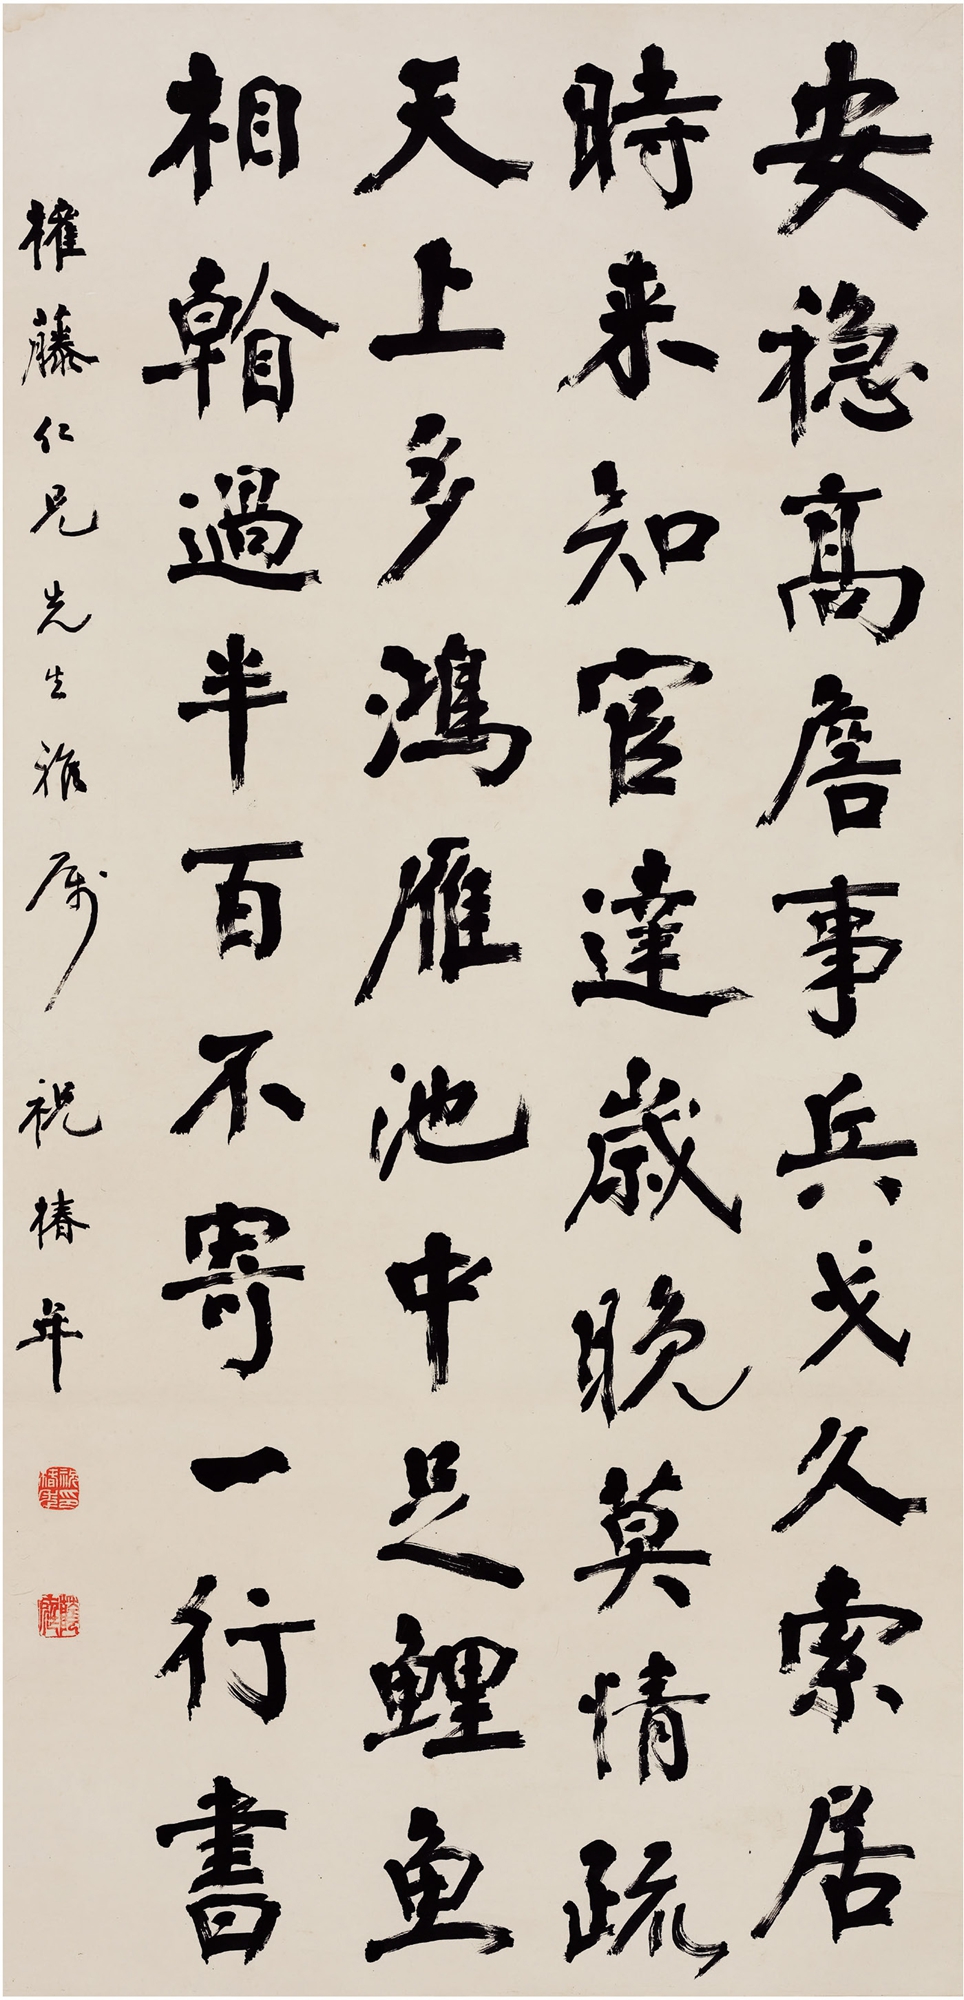 安穩高詹事兵戈久索居
時来知宦達歲晚莫情疏
天上多鴻雁池中足鯉魚
相看過半百不寄一行書
權藤仁兄先生雅属 祝椿年